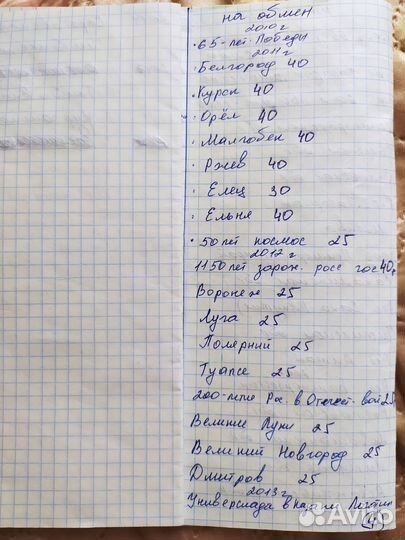 на обмен
2010 г
• 65-лет Победы
2011 г
• Белгород 40
• Курск 40
• Орёл 40
• Малгобек 40
• Ржев 40
• Елец 30
• Ельня 40
• 50 лет космос 25
2012 г
1150 лет зарож. росс гос 40р
Воронеж 25
Луга 25
Полярный 25
Туапсе 25
200-летие в Отечест. вой 25
Великие Луки 25
Великий Новгород 25
Дмитров 25
2013 г
Универсиада в Казани
Avito